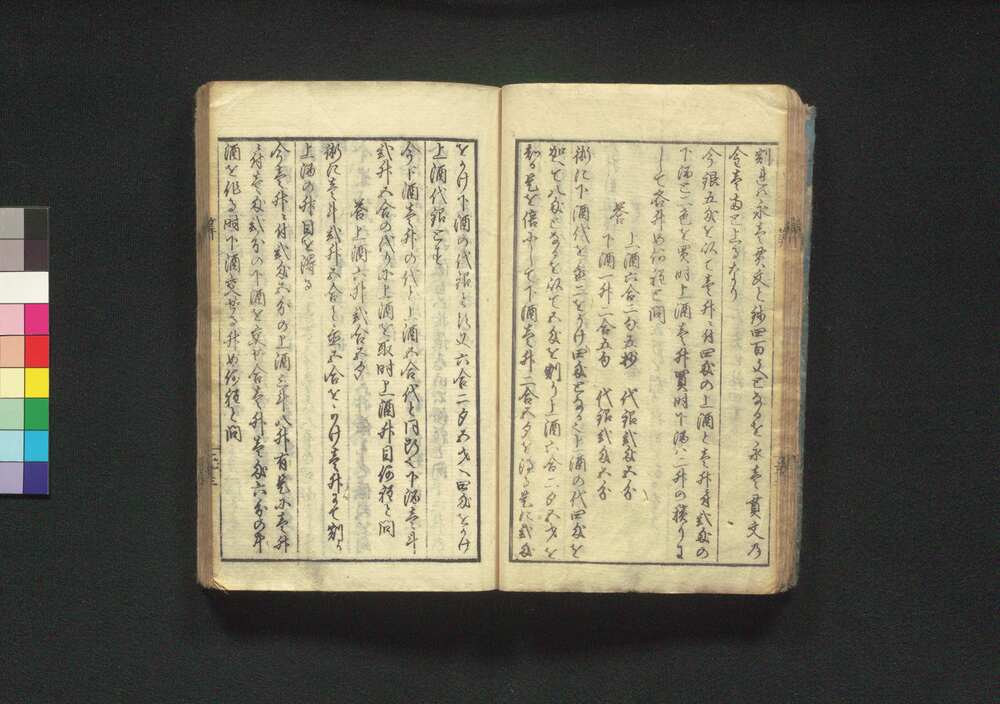 金壱両と云なり
今銀五匁を以て壱升ニ付四匁の上酒と壱升ニ付弐匁の
下酒と二色を買時上酒壱升買時下酒ハ二升の積りに
して各升め何程と問
答
上酒六合二勺五抄 代銀弐匁五分
下酒一升二合五勺 代銀弐匁五分
術に下酒代を置二をかけ四匁となる上酒の代四匁を
加へて八匁となるを以て五匁を割り上酒六合二夕五才を
知る是を倍にして下酒壱升二合五夕を得る是に弐匁
をかけ下酒の代銀と知又六合二夕五才へ四匁をかけ
上酒代銀とす
今下酒壱升の代と上酒五合代と同断又下酒壱斗
弐升五合の代りに上酒を取時上酒升目何程と問
答上酒六升弐合五夕
術に壱斗弐升五合を置五合をかけ壱升にて割り
上酒の升目を得る
今壱升ニ付弐匁五分の上酒三斗八升有是に壱升
ニ付壱匁弐分の下酒を交せ合壱升壱匁六分の中
酒を作る時下酒交せる升め何程と問